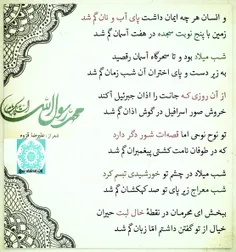 و انسان هر چه ایمان داشت پای آب و نان گم شد
زمین با پنج نوبت سجده در هفت آسمان گم شد
شب میلاد بود و تا سحرگاه آسمان رقصید
به زیر دست و پای اختران آن شب زمان گم شد
از آن روزی که جانت را اذان جبرئیل آکند
خروش صور اسرافیل در گوش اذان گم شد
تو نوح نوحی اما قصه‌ات شور دگر دارد
که در طوفان نامت کشتی پیغمبران گم شد
شب میلاد در چشم تو خورشیدی تبسم کرد
شب معراج زیر پای تو صد کهکشان گم شد
ببخش ای محرمان در نقطهٔ خال لبت حیران
خیال از تو گفتن داشتم امّا زبان گم شد
محمد رسول الله
شعر از: علیرضا قزوه